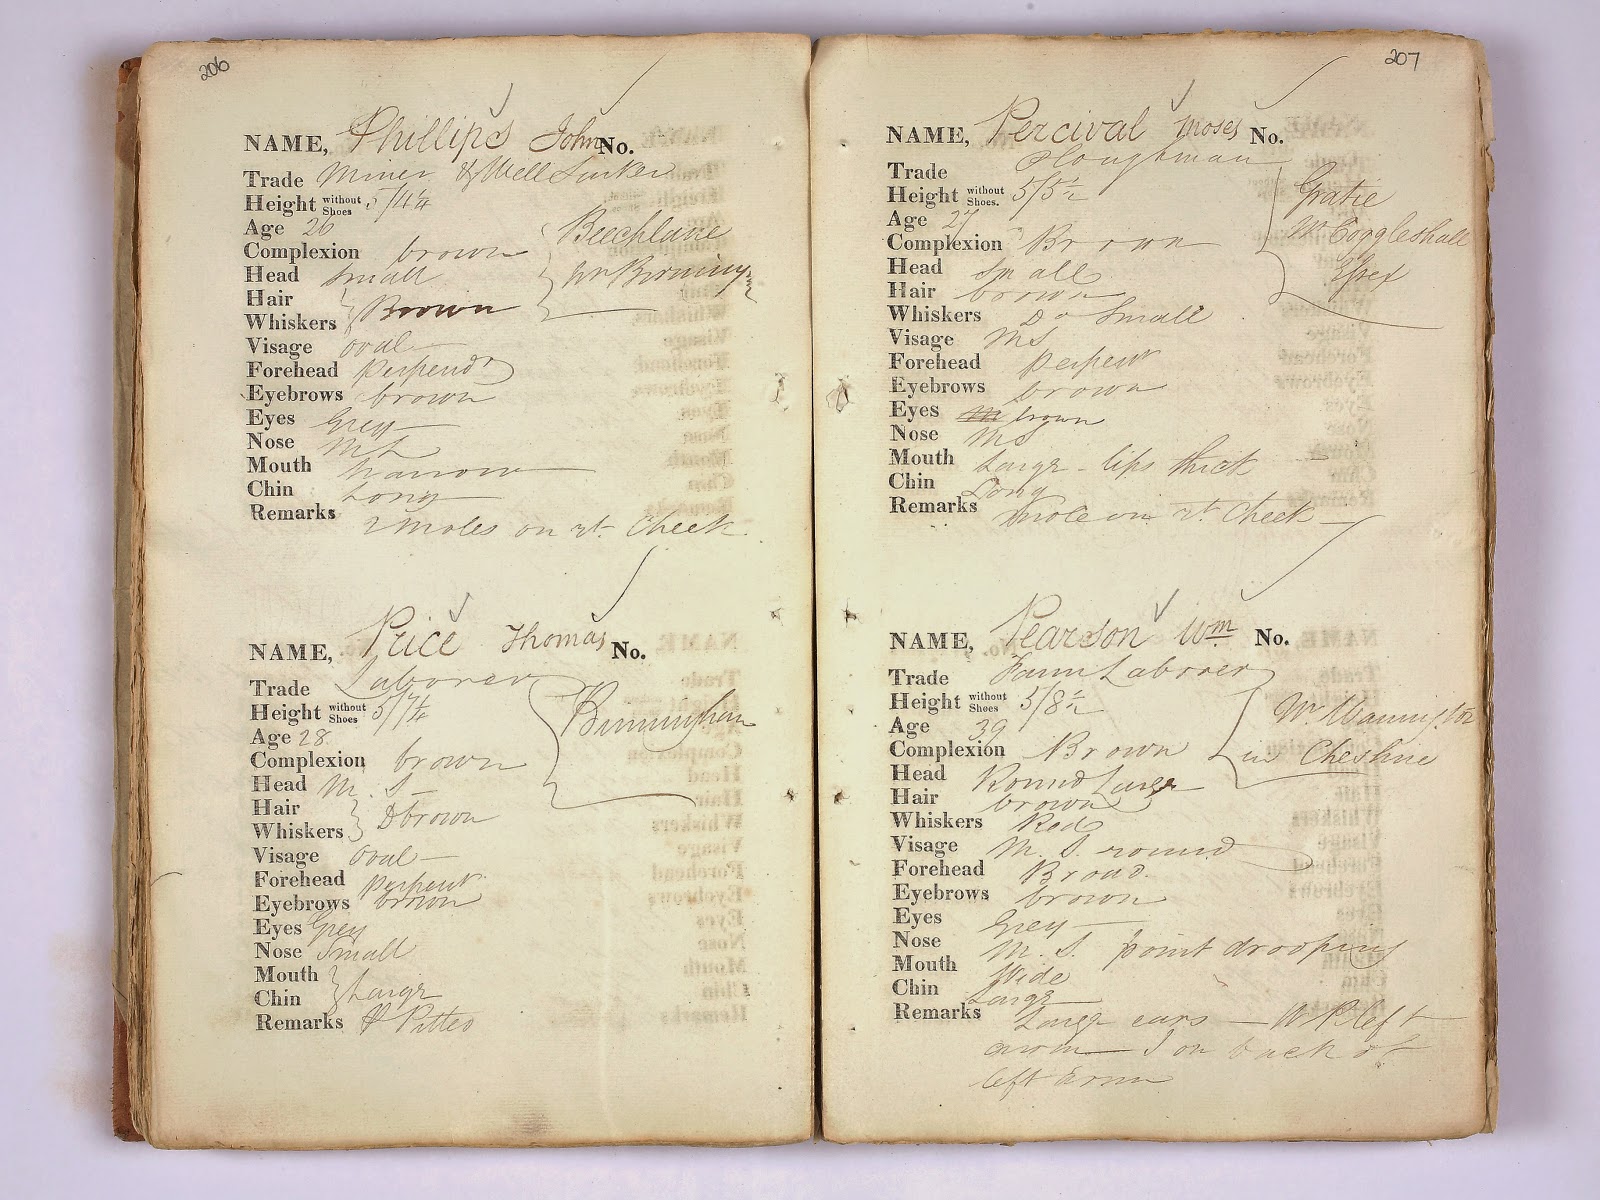 206
NAME, Phillips John No.
Trade Miner & Well Sinker
Height without Shoes 5/4¼
Age 26
Complexion brown
Beechlane
Head small
nr Birming
Hair
Whiskers } Brown
Visage oval
Forehead perpendr
Eyebrows brown
Eyes Grey
Nose M L
Mouth Narrow
Chin Long
Remarks
2 moles on rt. Cheek
NAME, Price Thomas No.
Trade Laborer
Height without Shoes 5/7¼
Birmingham
Age 28
Complexion brown
Head M. S
Hair
Whiskers } D brown
Visage Oval
Forehead perpent
Eyebrows brown
Eyes Grey
Nose Small
Mouth
Chin } Large
Remarks P Pitted
207
NAME, Percival Moses No.
Trade Ploughman
Height without Shoes. 5/5½
Age 27
Nr Coggleshall
Complexion Brown
Head Small
Essex
Hair brown
Whiskers Do Small
Visage MS
Forehead perpent
Eyebrows brown
Eyes brown
Nose MS
Mouth Large - lips thick
Chin Long
Remarks
mole on rt. Cheek
NAME, Pearson Wm No.
Trade Farm Laborer
Height without Shoes 5/8½
Nr. Warrington
Age 39
Complexion Brown
in Cheshire
Head Round Large
Hair brown
Whiskers Red
Visage M. S. round
Forehead Broad.
Eyebrows brown
Eyes Grey
Nose M. S. point drooping
Mouth Wide
Chin Large
Remarks Large ears — W P left
arm — I on back of
left arm